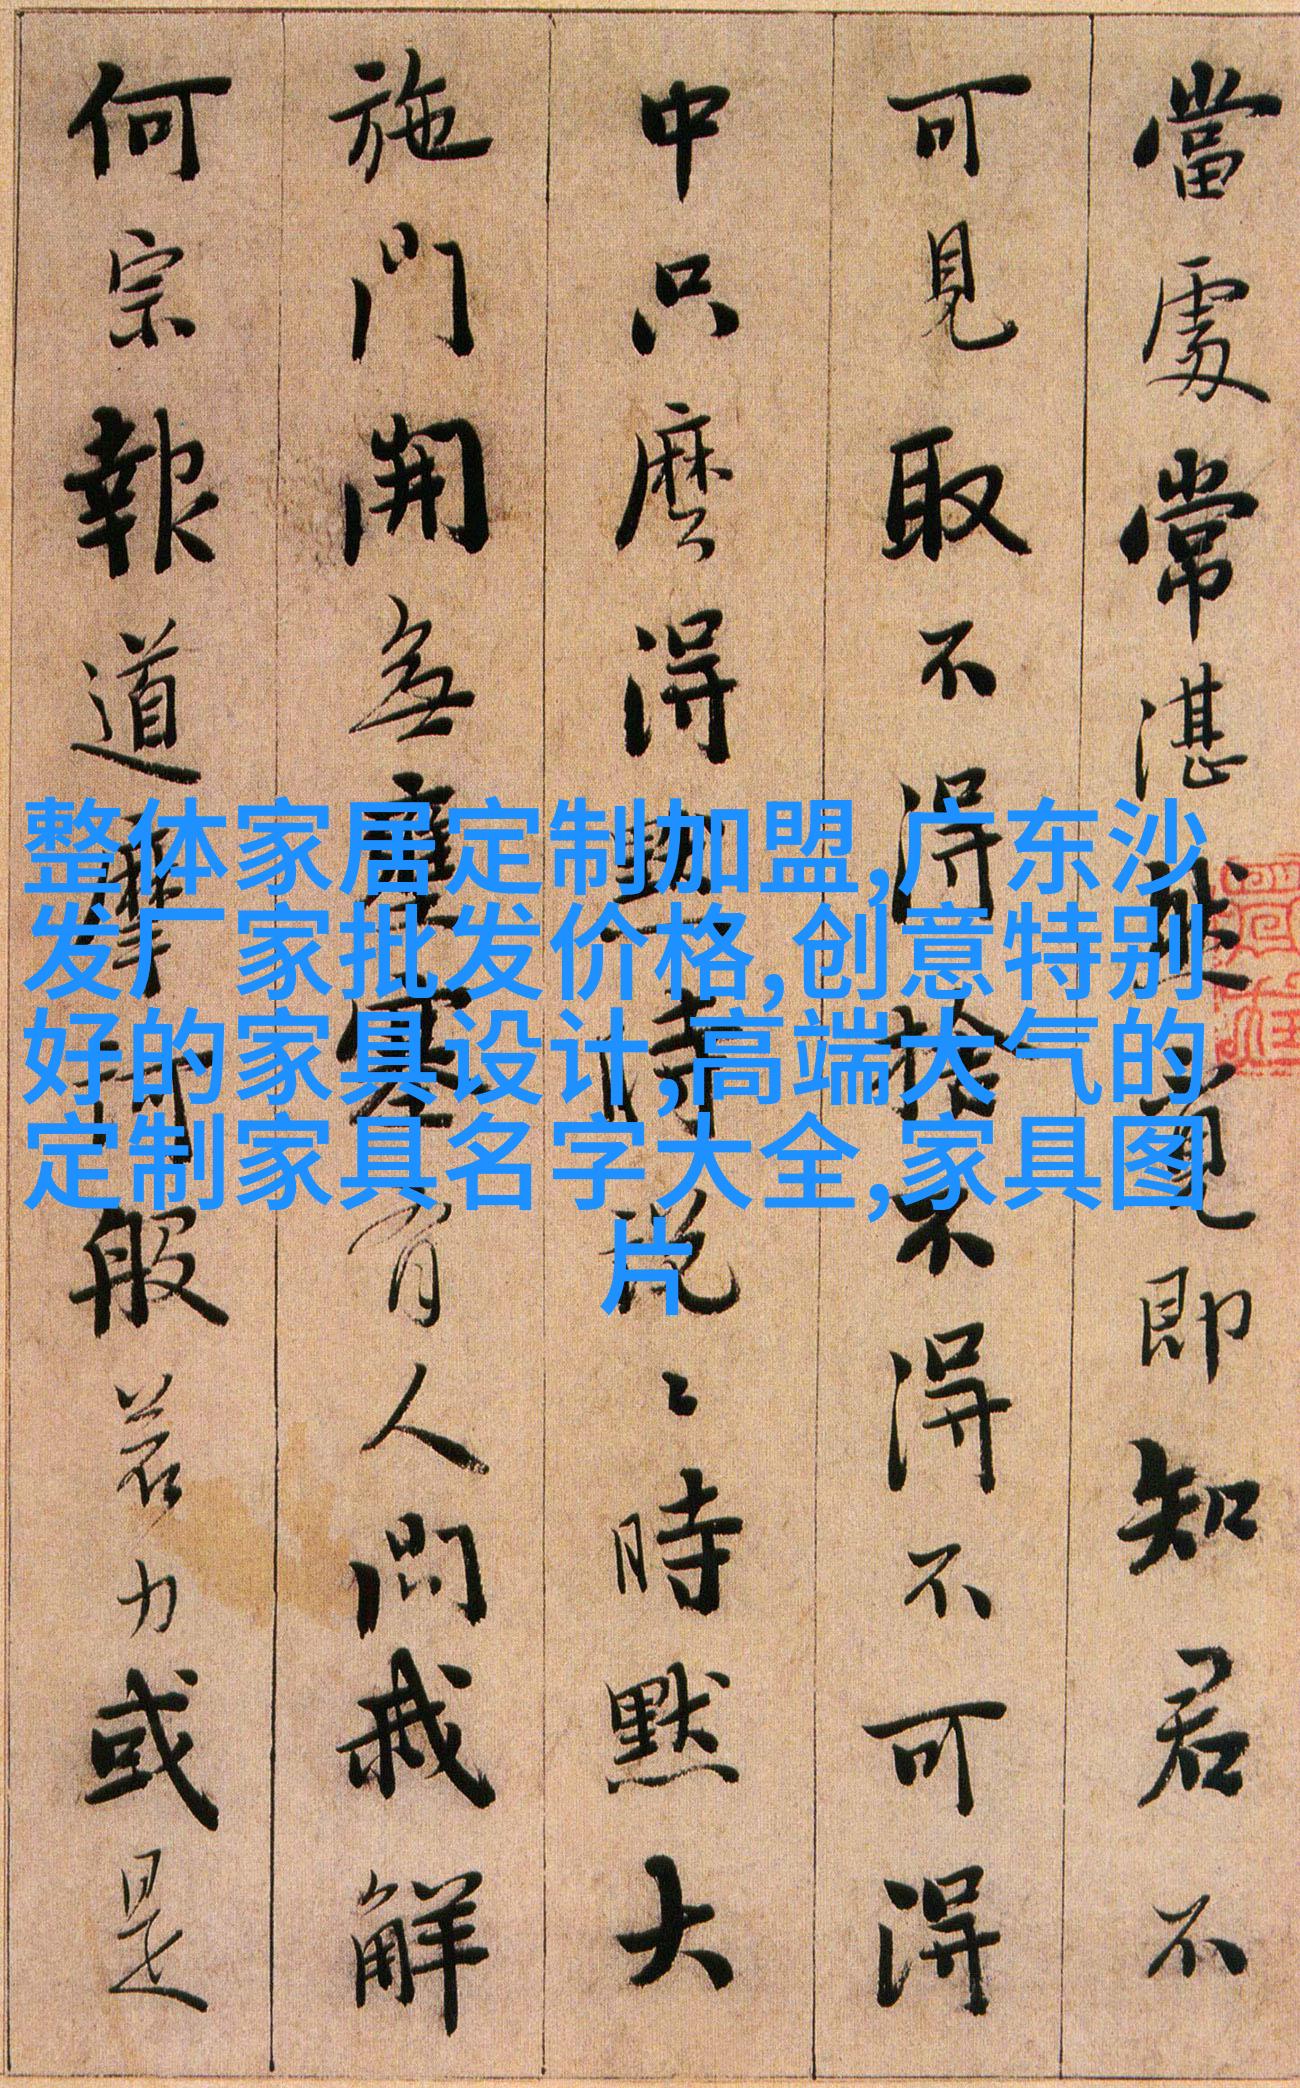 當處常湛然覓即知君不
可見取不得捨不得不可得
中只麼得默時說〻時默大
施門開無壅塞有人問我解
何宗報道摩訶般若力或是
整体家居定制加盟,广东沙
发厂家批发价格,创意特别
好的家具设计,高端大气的
定制家具名字大全,家具图
片